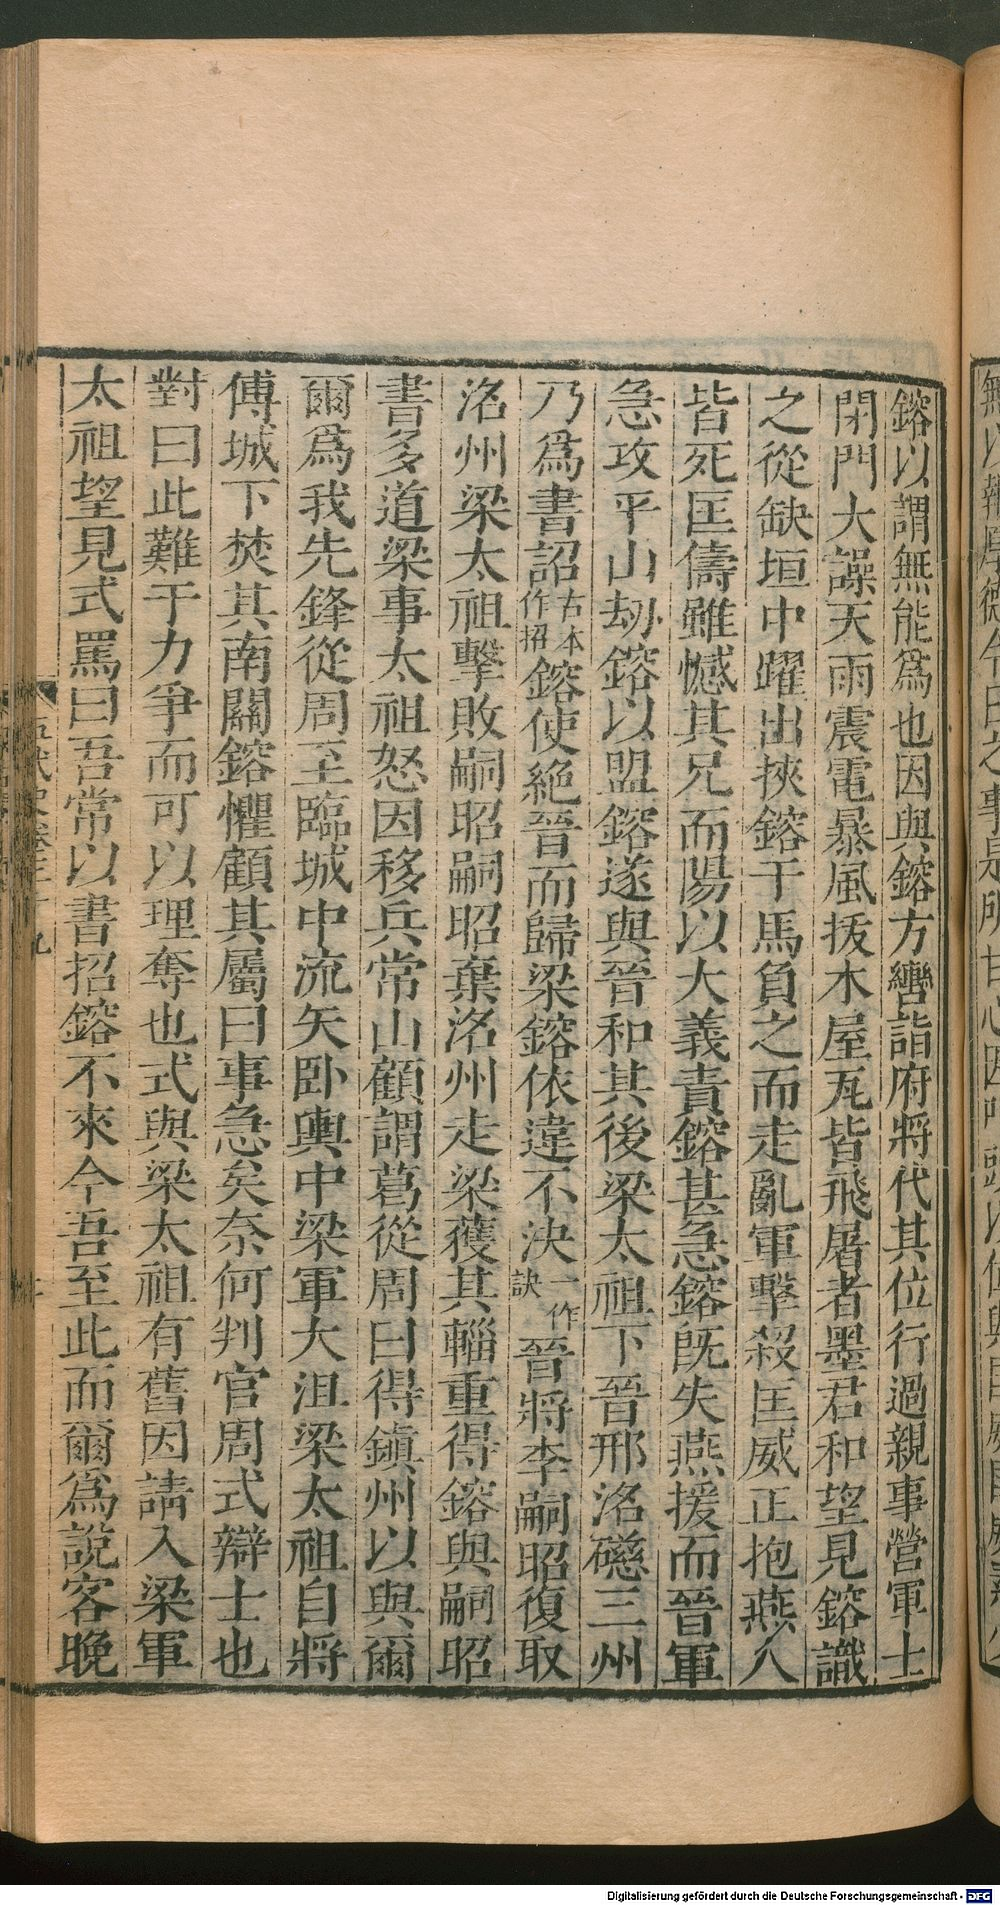 鎔以謂無能爲也因與鎔方轡詣府將代其位行過親事營軍士
閉門大譟天雨震電暴風拔木屋瓦皆飛屠者墨君和望見鎔識
之從缺垣中躍出挾鎔于馬負之而走亂軍擊殺匡威正抱燕人
皆死匡儔雖憾其兄而陽以大義責鎔甚急鎔既失燕援而晉軍
急攻平山劫鎔以盟鎔遂與晉和其後梁太祖下晉邢洺磁三州
乃爲書詔古本作招鎔使絶晉而歸梁鎔依違不決一作訣晉將李嗣昭復取
洺州梁太祖擊敗嗣昭嗣昭棄洺州走梁獲其輜重得鎔與嗣昭
書多道梁事太祖怒因移兵常山顧謂葛從周曰得鎭州以與爾
爾爲我先鋒從周至臨城中流矢卧輿中梁軍大沮梁太祖自將
傅城下焚其南關鎔懼顧其屬曰事急矣奈何判官周式辯士也
對曰此難于力爭而可以理奪也式與梁太祖有舊因請入梁軍
太祖望見式罵曰吾常以書招鎔不來今吾至此而爾爲說客晚
五代史卷三十九
Digitalisierung gefördert durch die Deutsche Forschungsgemeinschaft - DFG